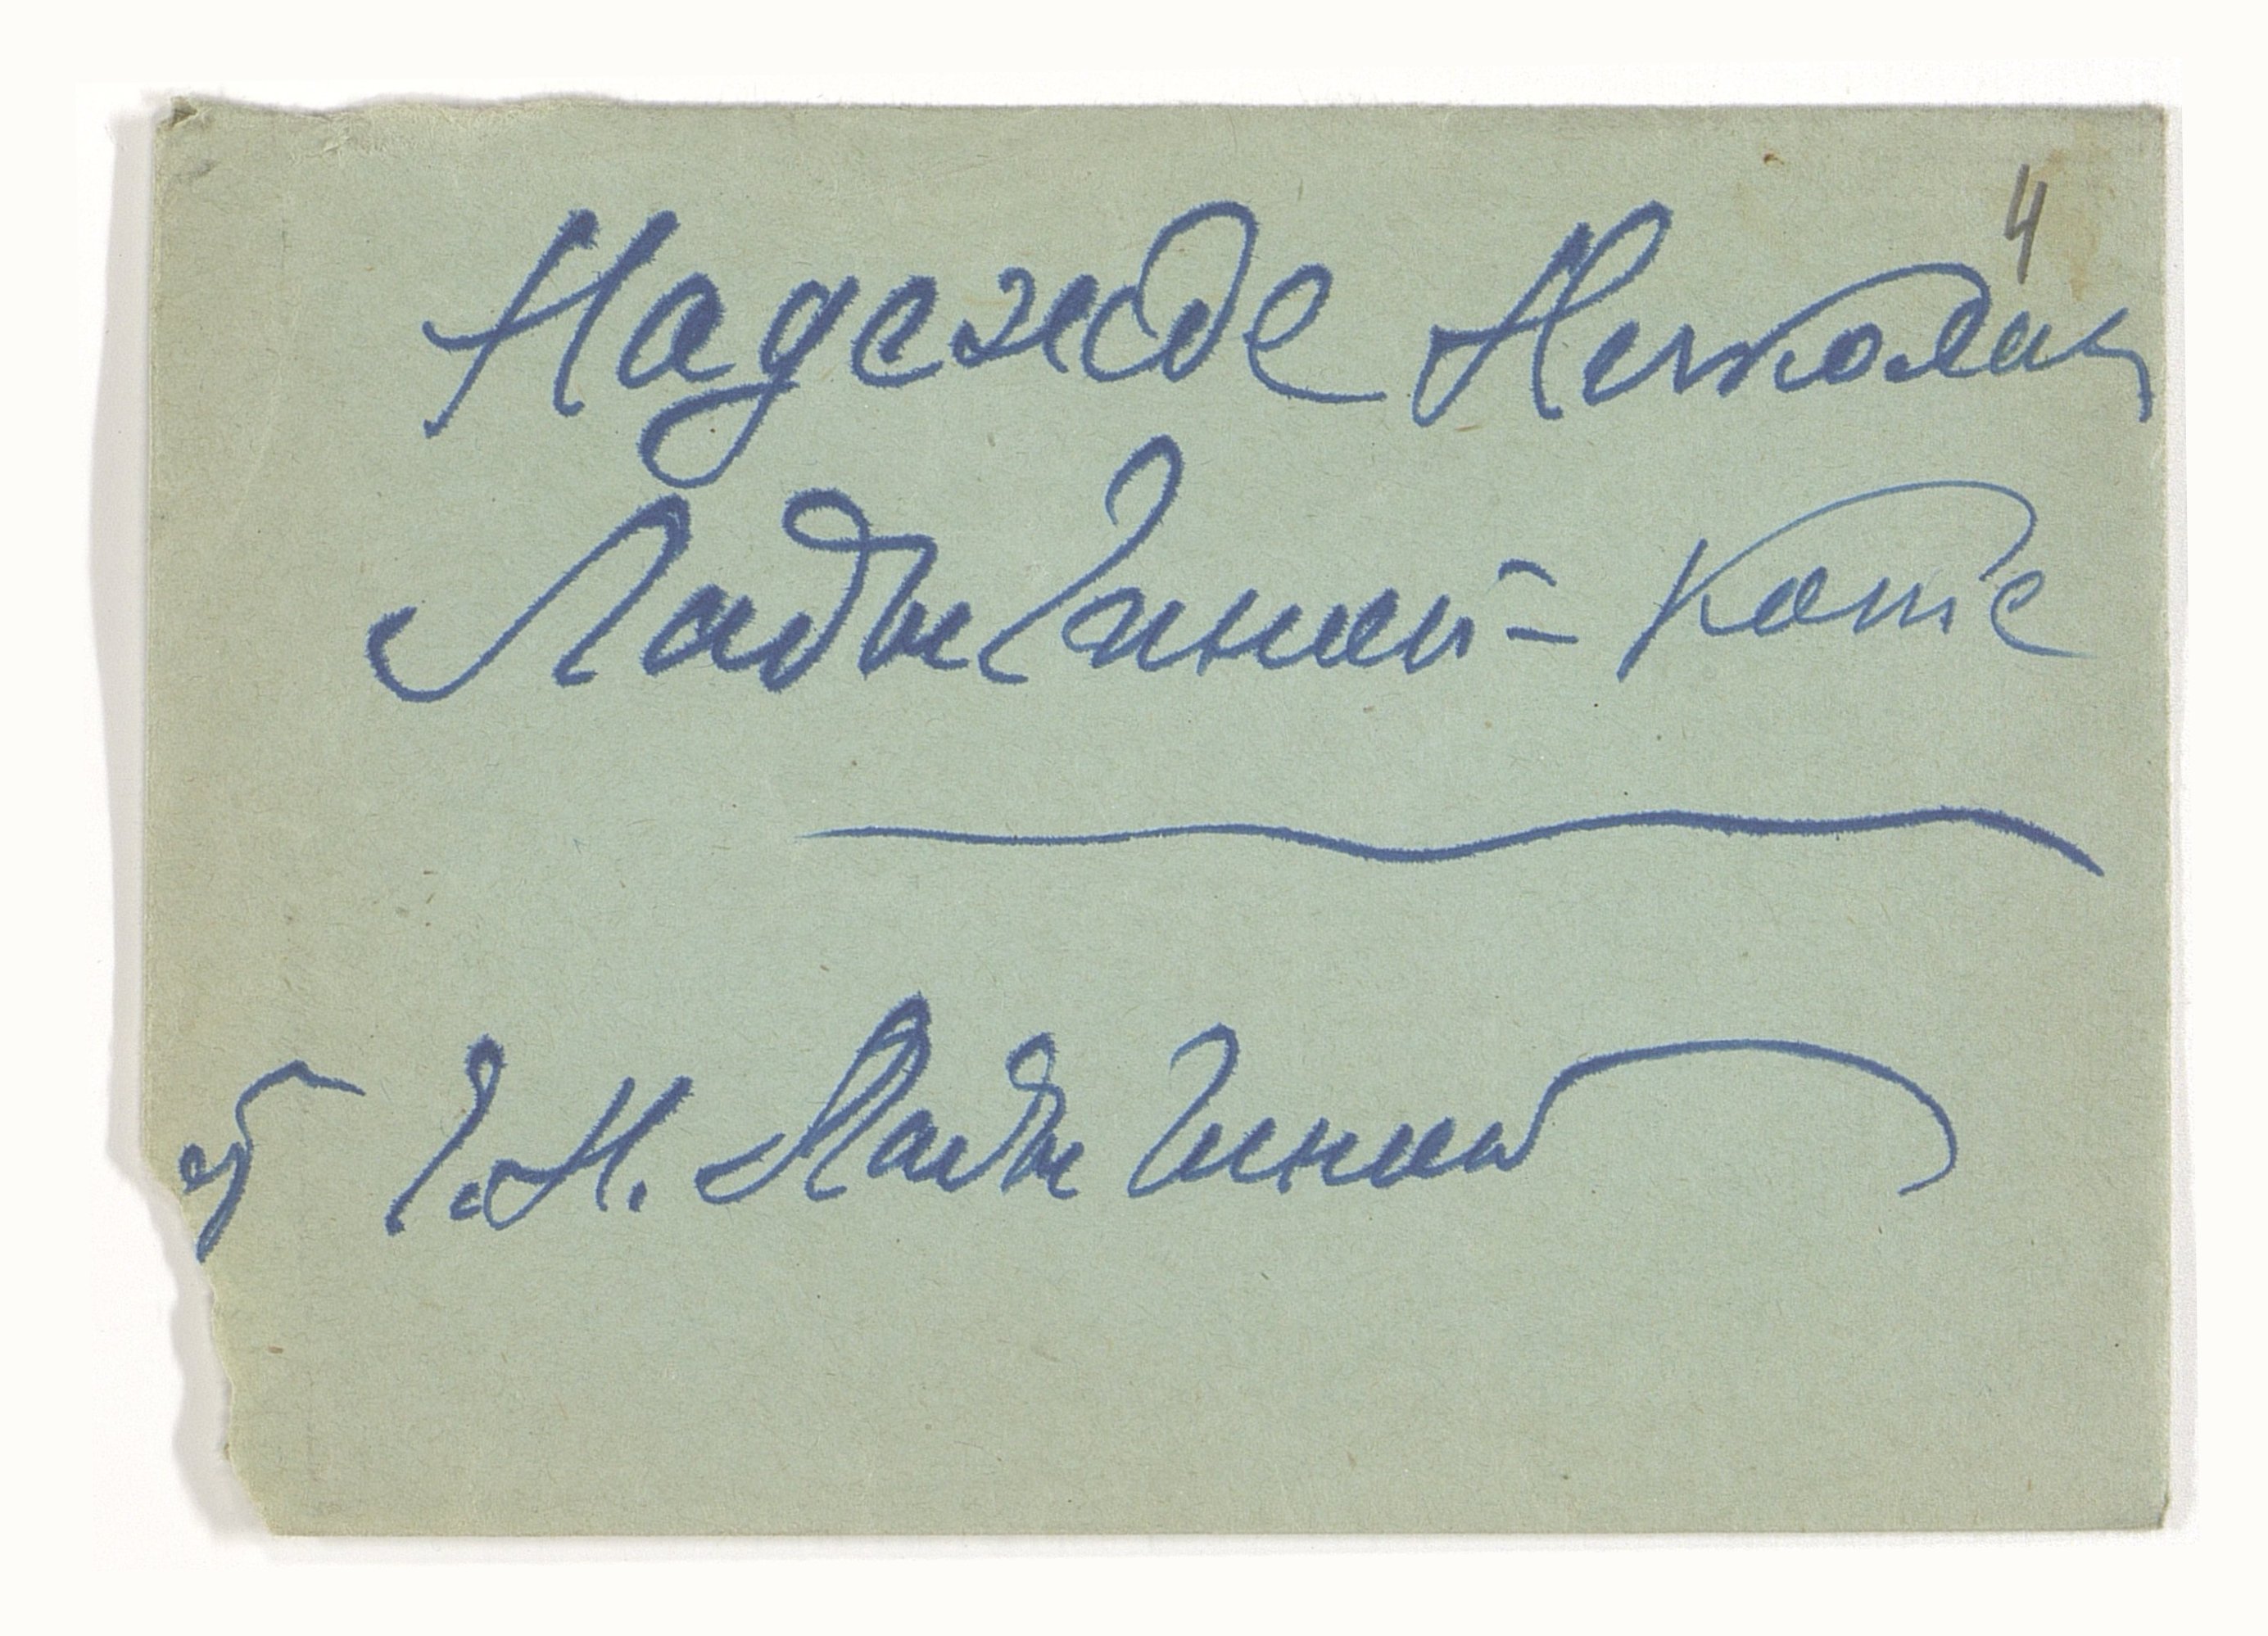 4
Надежде Николаев
Ладыгиной = Коте
от Т. Н. Ладыгиной